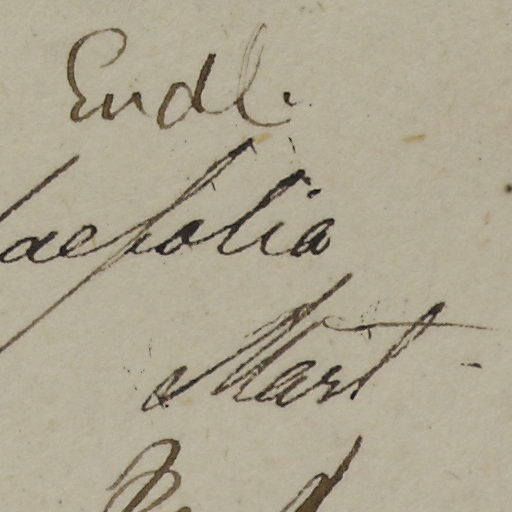 Endl.
aefolia
Mart